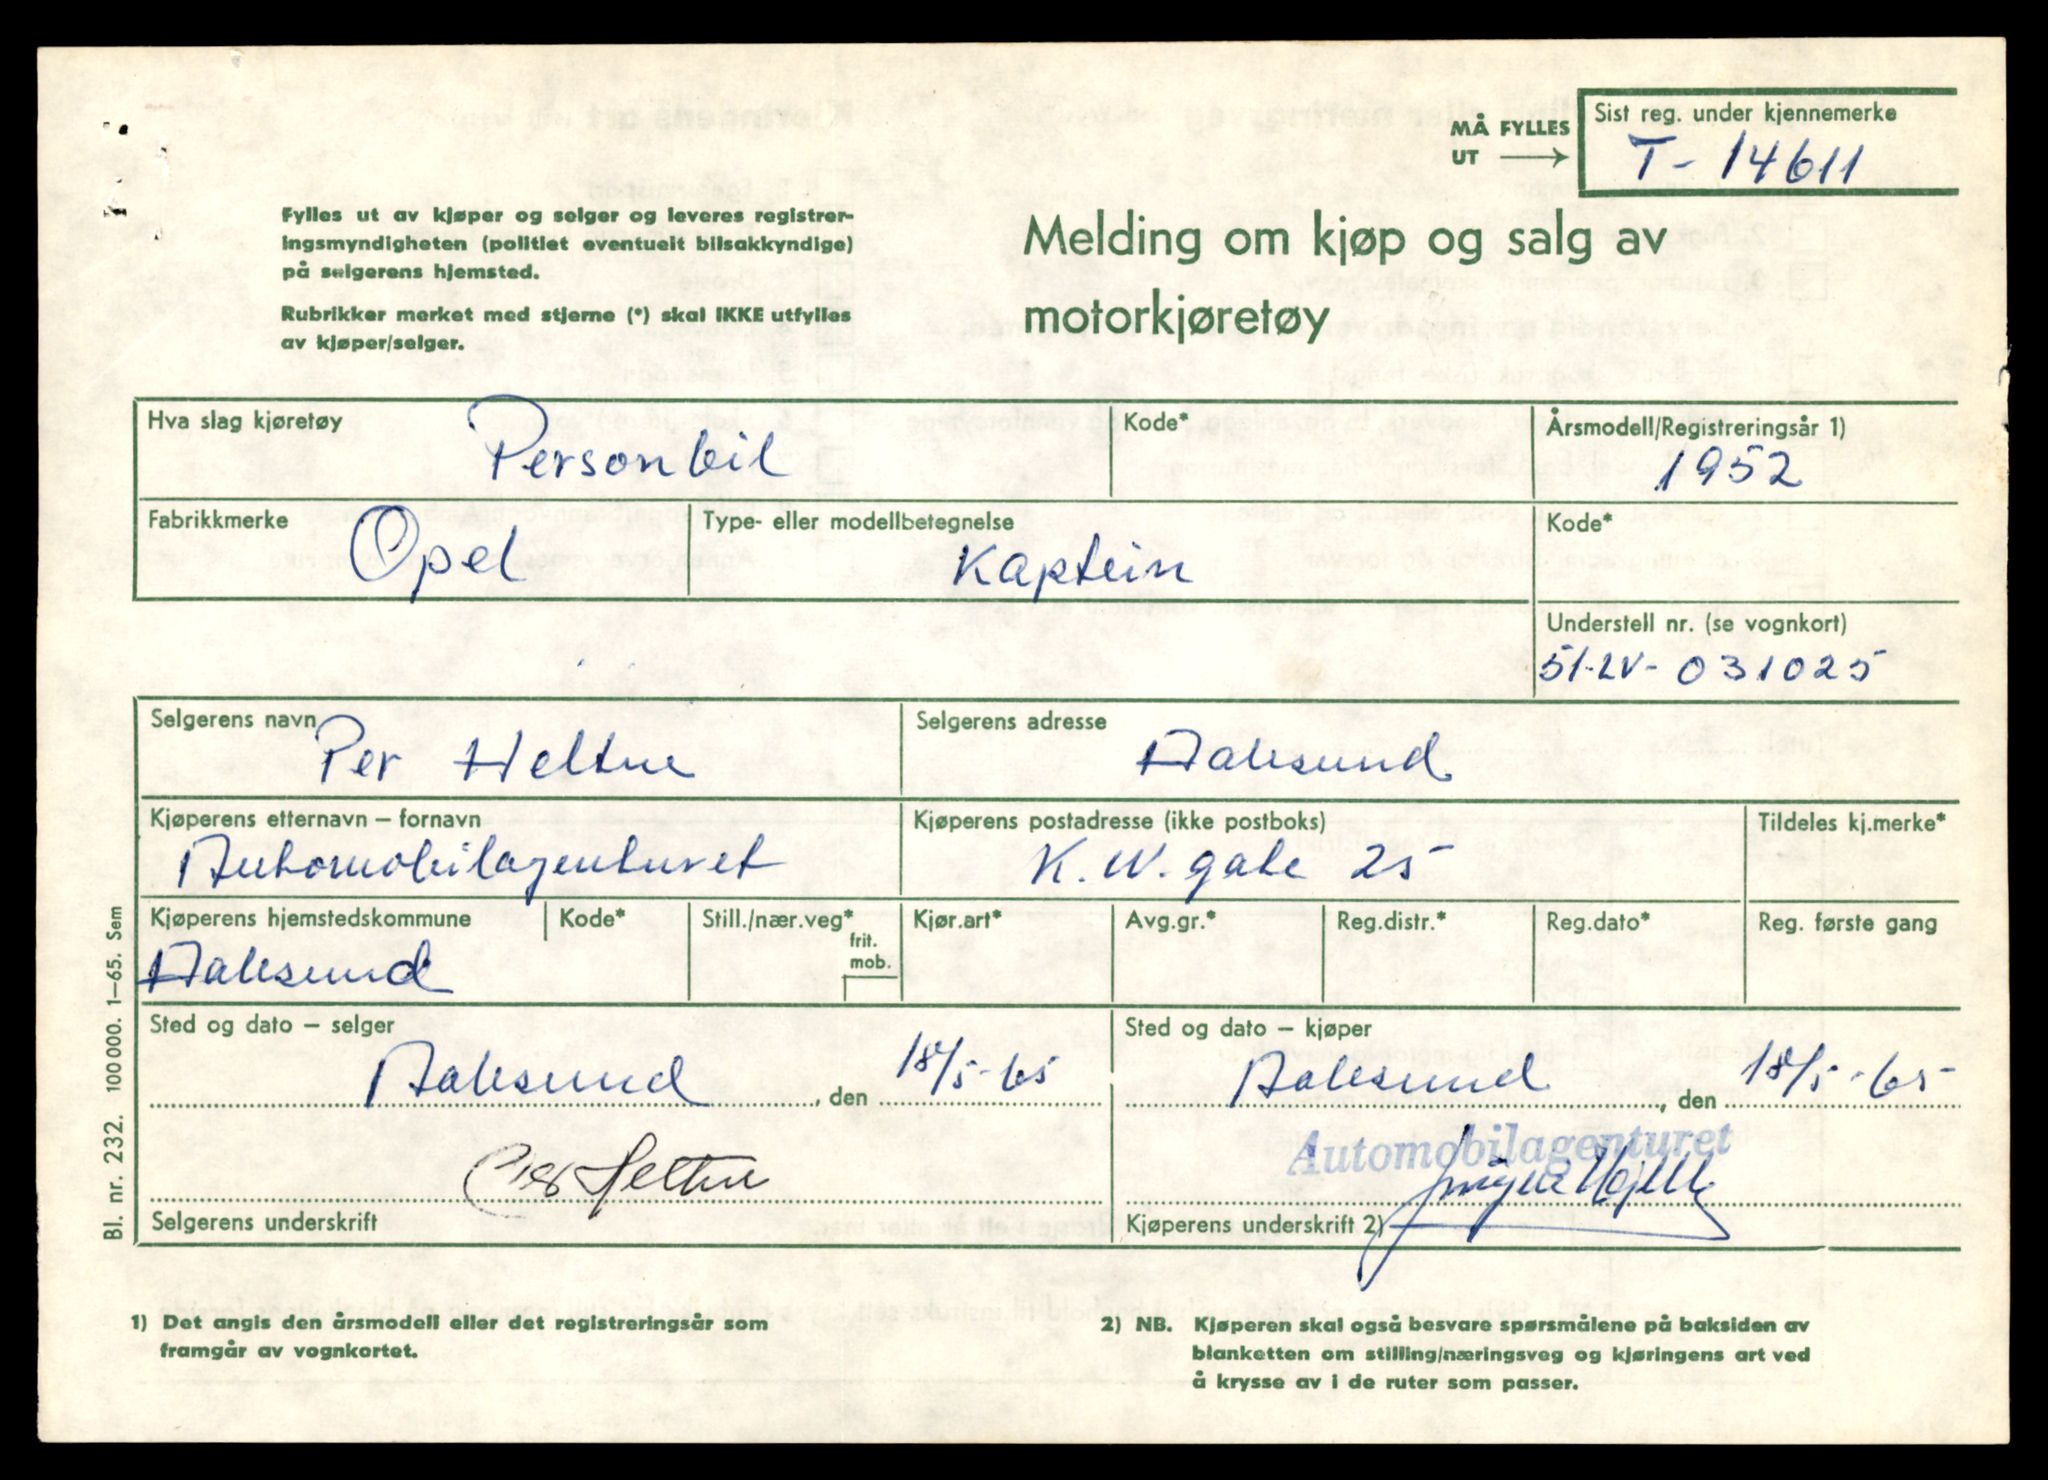 MÅ FYLLES
UT →
Sist reg. under kjennemerke
T- 14611
Fylles ut av kjøper og selger og leveres registrer-
ingsmyndigheten (politiet eventuelt bilsakkyndige)
på selgerens hjemsted.
Rubrikker merket med stjerne (*) skal IKKE utfylles
av kjøper/selger.
Melding om kjøp og salg av
motorkjøretøy
Hva slag kjøretøy
Personbil
Kode*
Årsmodell/Registreringsår 1)
1952
Fabrikkmerke
Opel
Type- eller modellbetegnelse
Kaptein
Kode*
Understell nr. (se vognkort)
51-LV- 031025
Selgerens navn
Per Heltne
Selgerens adresse
Aalesund
Kjøperens etternavn – fornavn
Automobilagenturet
Kjøperens postadresse (ikke postboks)
K. W. gate 25
Tildeles kj.merke*
Kjøperens hjemstedskommune
Aalesund
Kode*
Still./nær.veg*
frit.
mob.
Kjør.art*
Avg.gr.*
Reg.distr.*
Reg.dato*
Reg. første gang
Sted og dato – selger
Aalesund, den 18/5-65
Sted og dato – kjøper
Aalesund, den 18/5-65
Per Heltne
Selgerens underskrift
Automobilagenturet
Kjøperens underskrift 2)
1) Det angis den årsmodell eller det registreringsår som
framgår av vognkortet.
2) NB. Kjøperen skal også besvare spørsmålene på baksiden av
blanketten om stilling/næringsveg og kjøringens art ved
å krysse av i de ruter som passer.
Bl. nr. 232. 100 000. 1–65. Sem